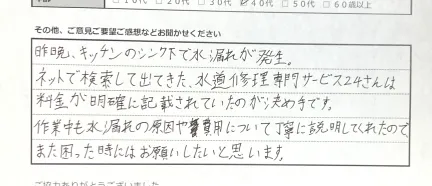 □10代 □20代 □30代 ☑40代 □50代 □60歳以上
その他、ご意見ご要望ご感想などお聞かせください
昨晩、キッチンのシンク下で水漏れが発生。
ネットで検索して出てきた、水道修理専門サービス24さんは
料金が明確に記載されていたのが決め手です。
作業中も水漏れの原因や費用について丁寧に説明してくれたので
また困った時にはお願いしたいと思います。
ご協力ありがとうございました